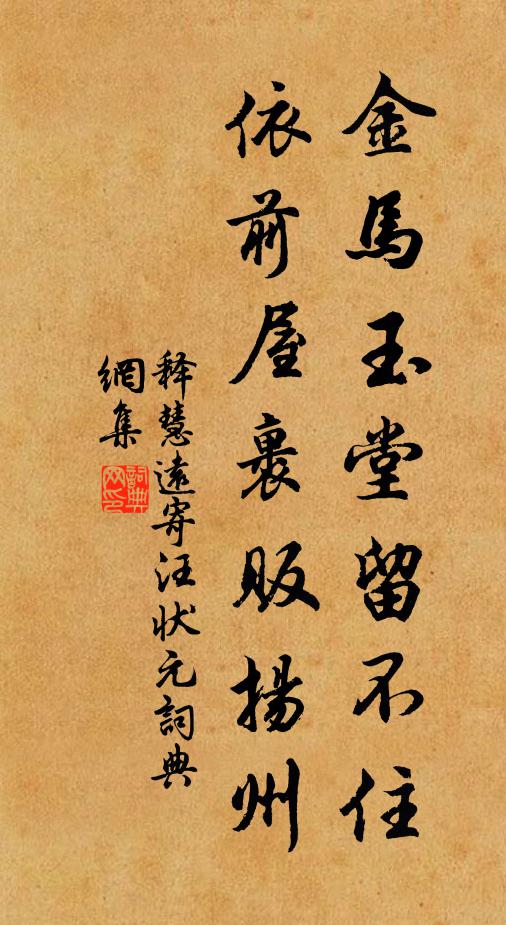 金馬玉堂留不住
依前屋裹販揚州
釋慧遠寄汪狀元詞典
網集
詞典
网印